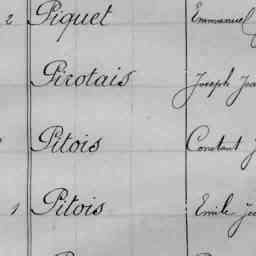 2 Piquet Emmanuel
Pirotais Joseph
Pitois Constant
1 Pitois Emile